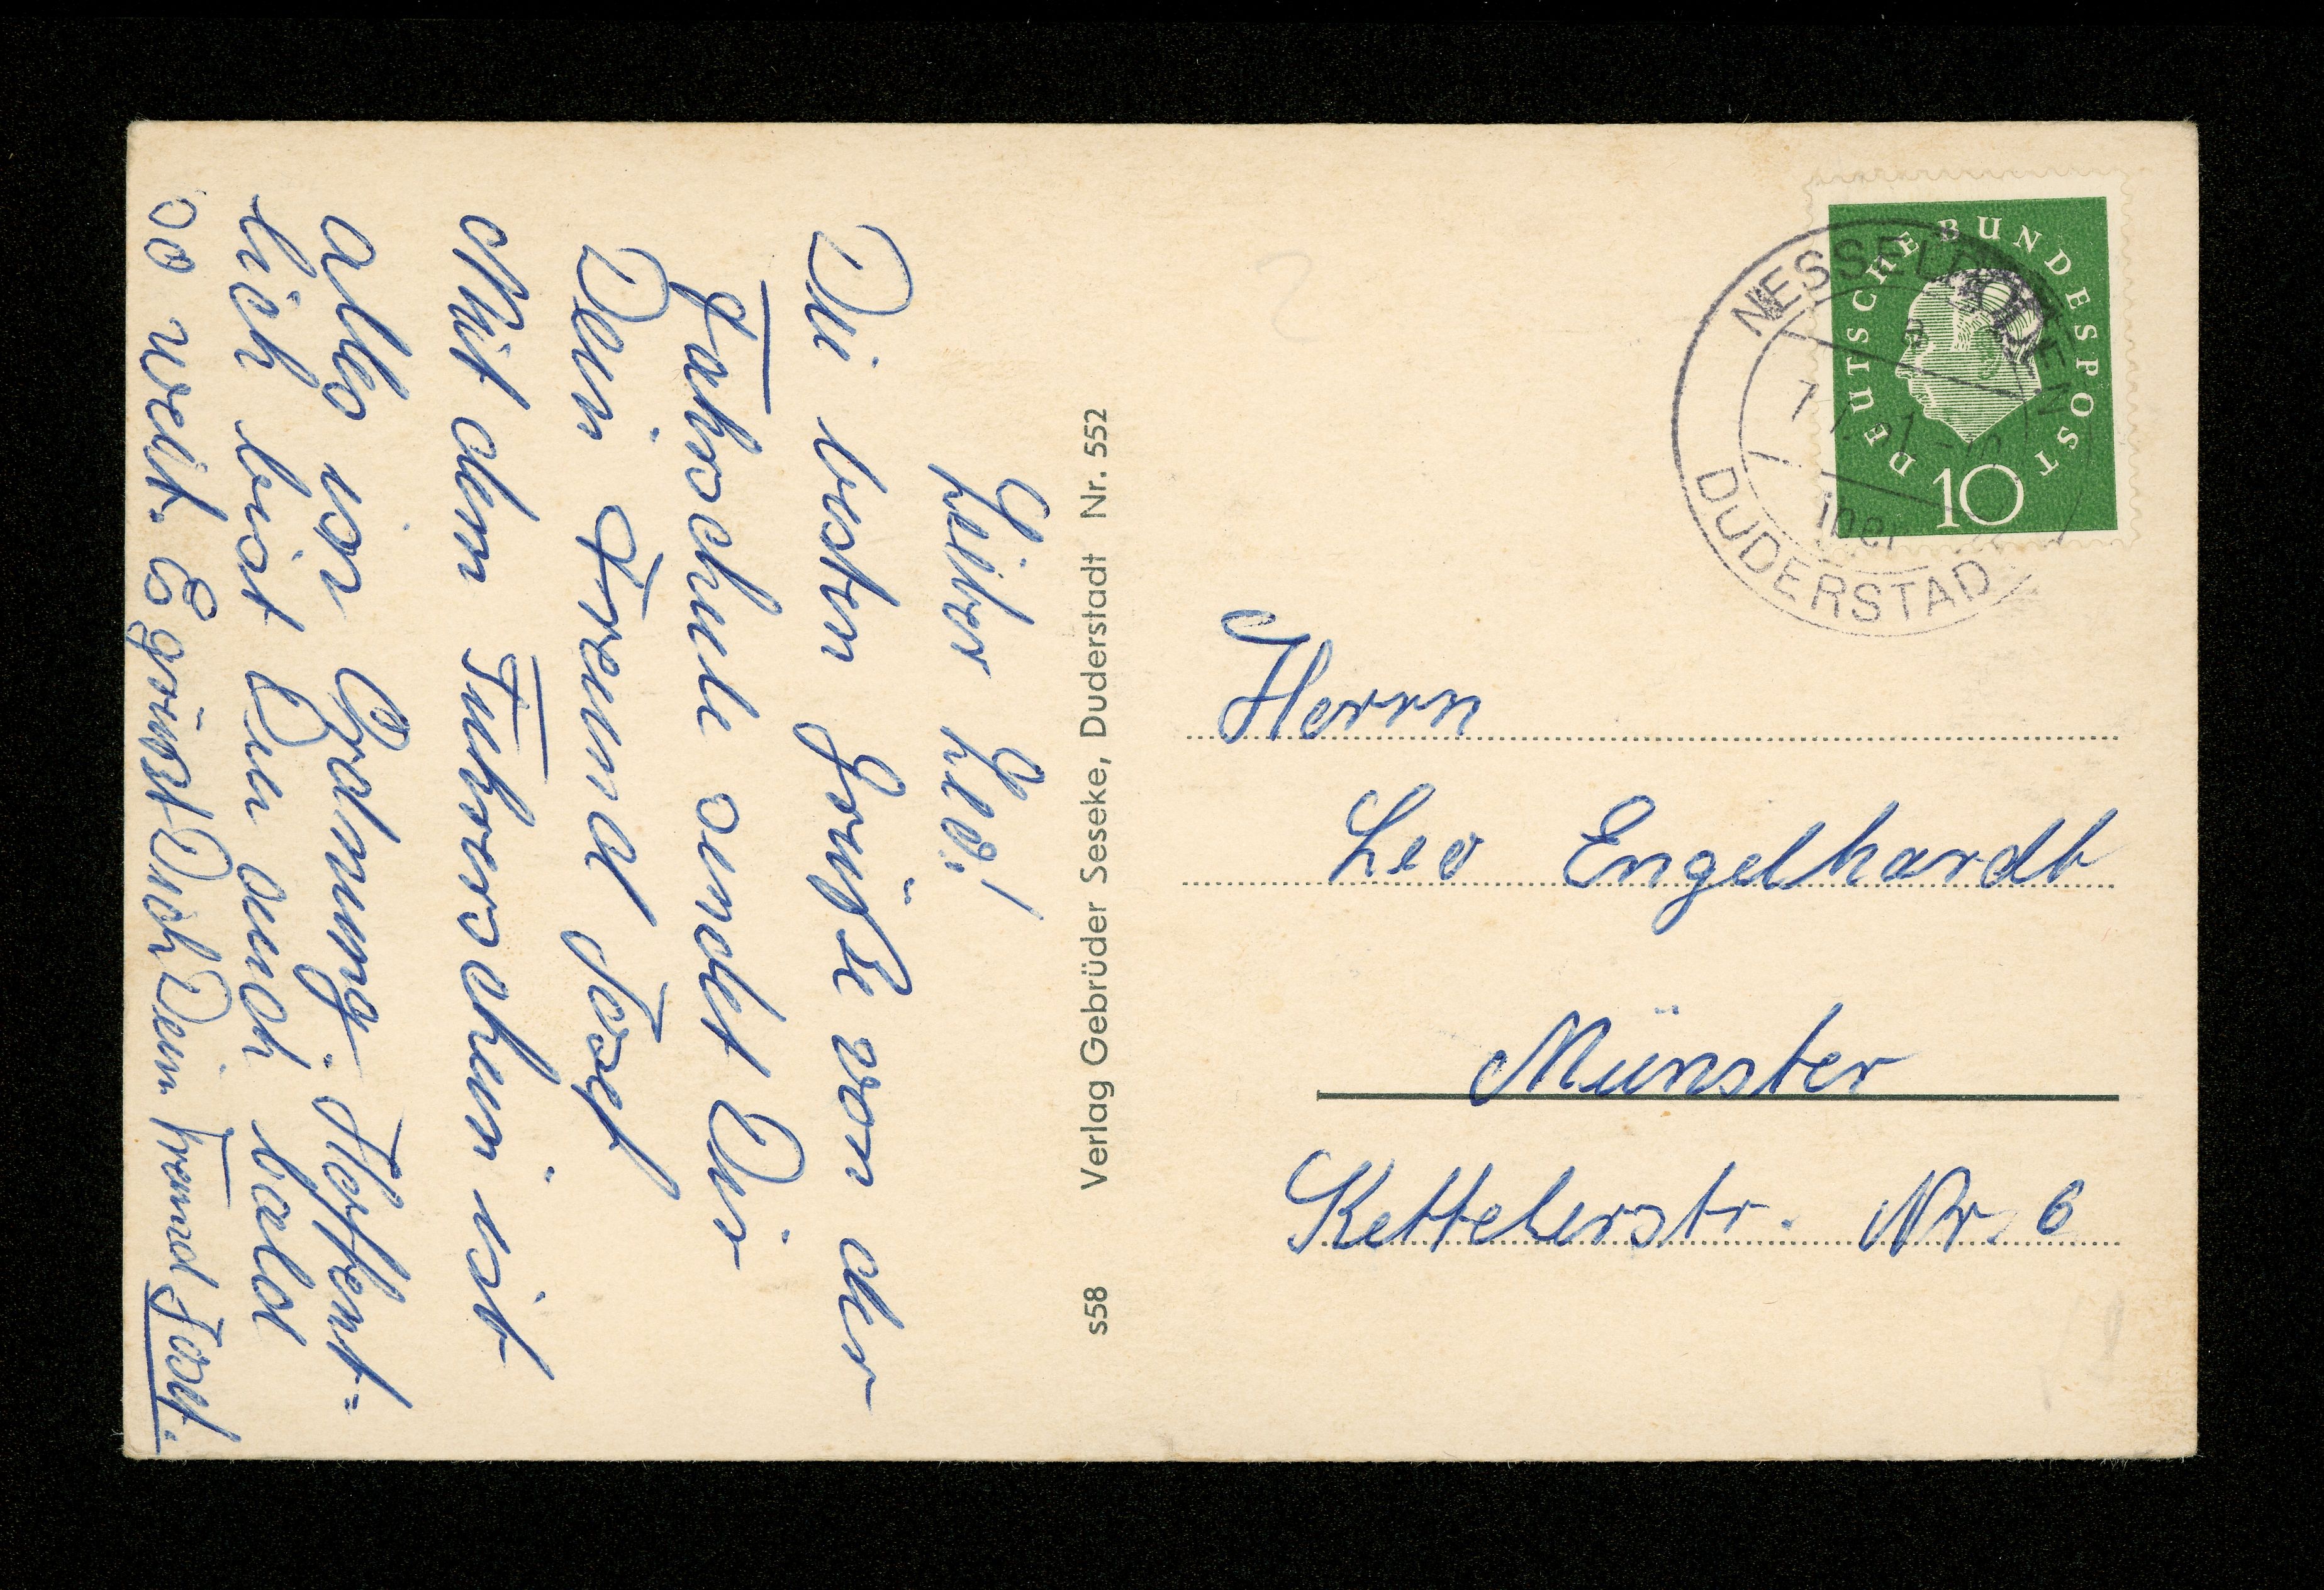 Lieber Leo!
Die besten Grüße von der
Fahrschule sendet Dir
Dein Freund Josef
Mit dem Führerschein ist
alles in Ordnung. Hoffent-
lich bist Du auch bald
so weit. Es grüßt Dich Dein Freund Josef.
Verlag Gebrüder Seseke, Duderstadt Nr. 552
s58
DEUTSCHE BUNDESPOST
10
DUDERSTAD
Herrn
Leo Engelhardt
Münster
Kettelerstr. Nr. 6